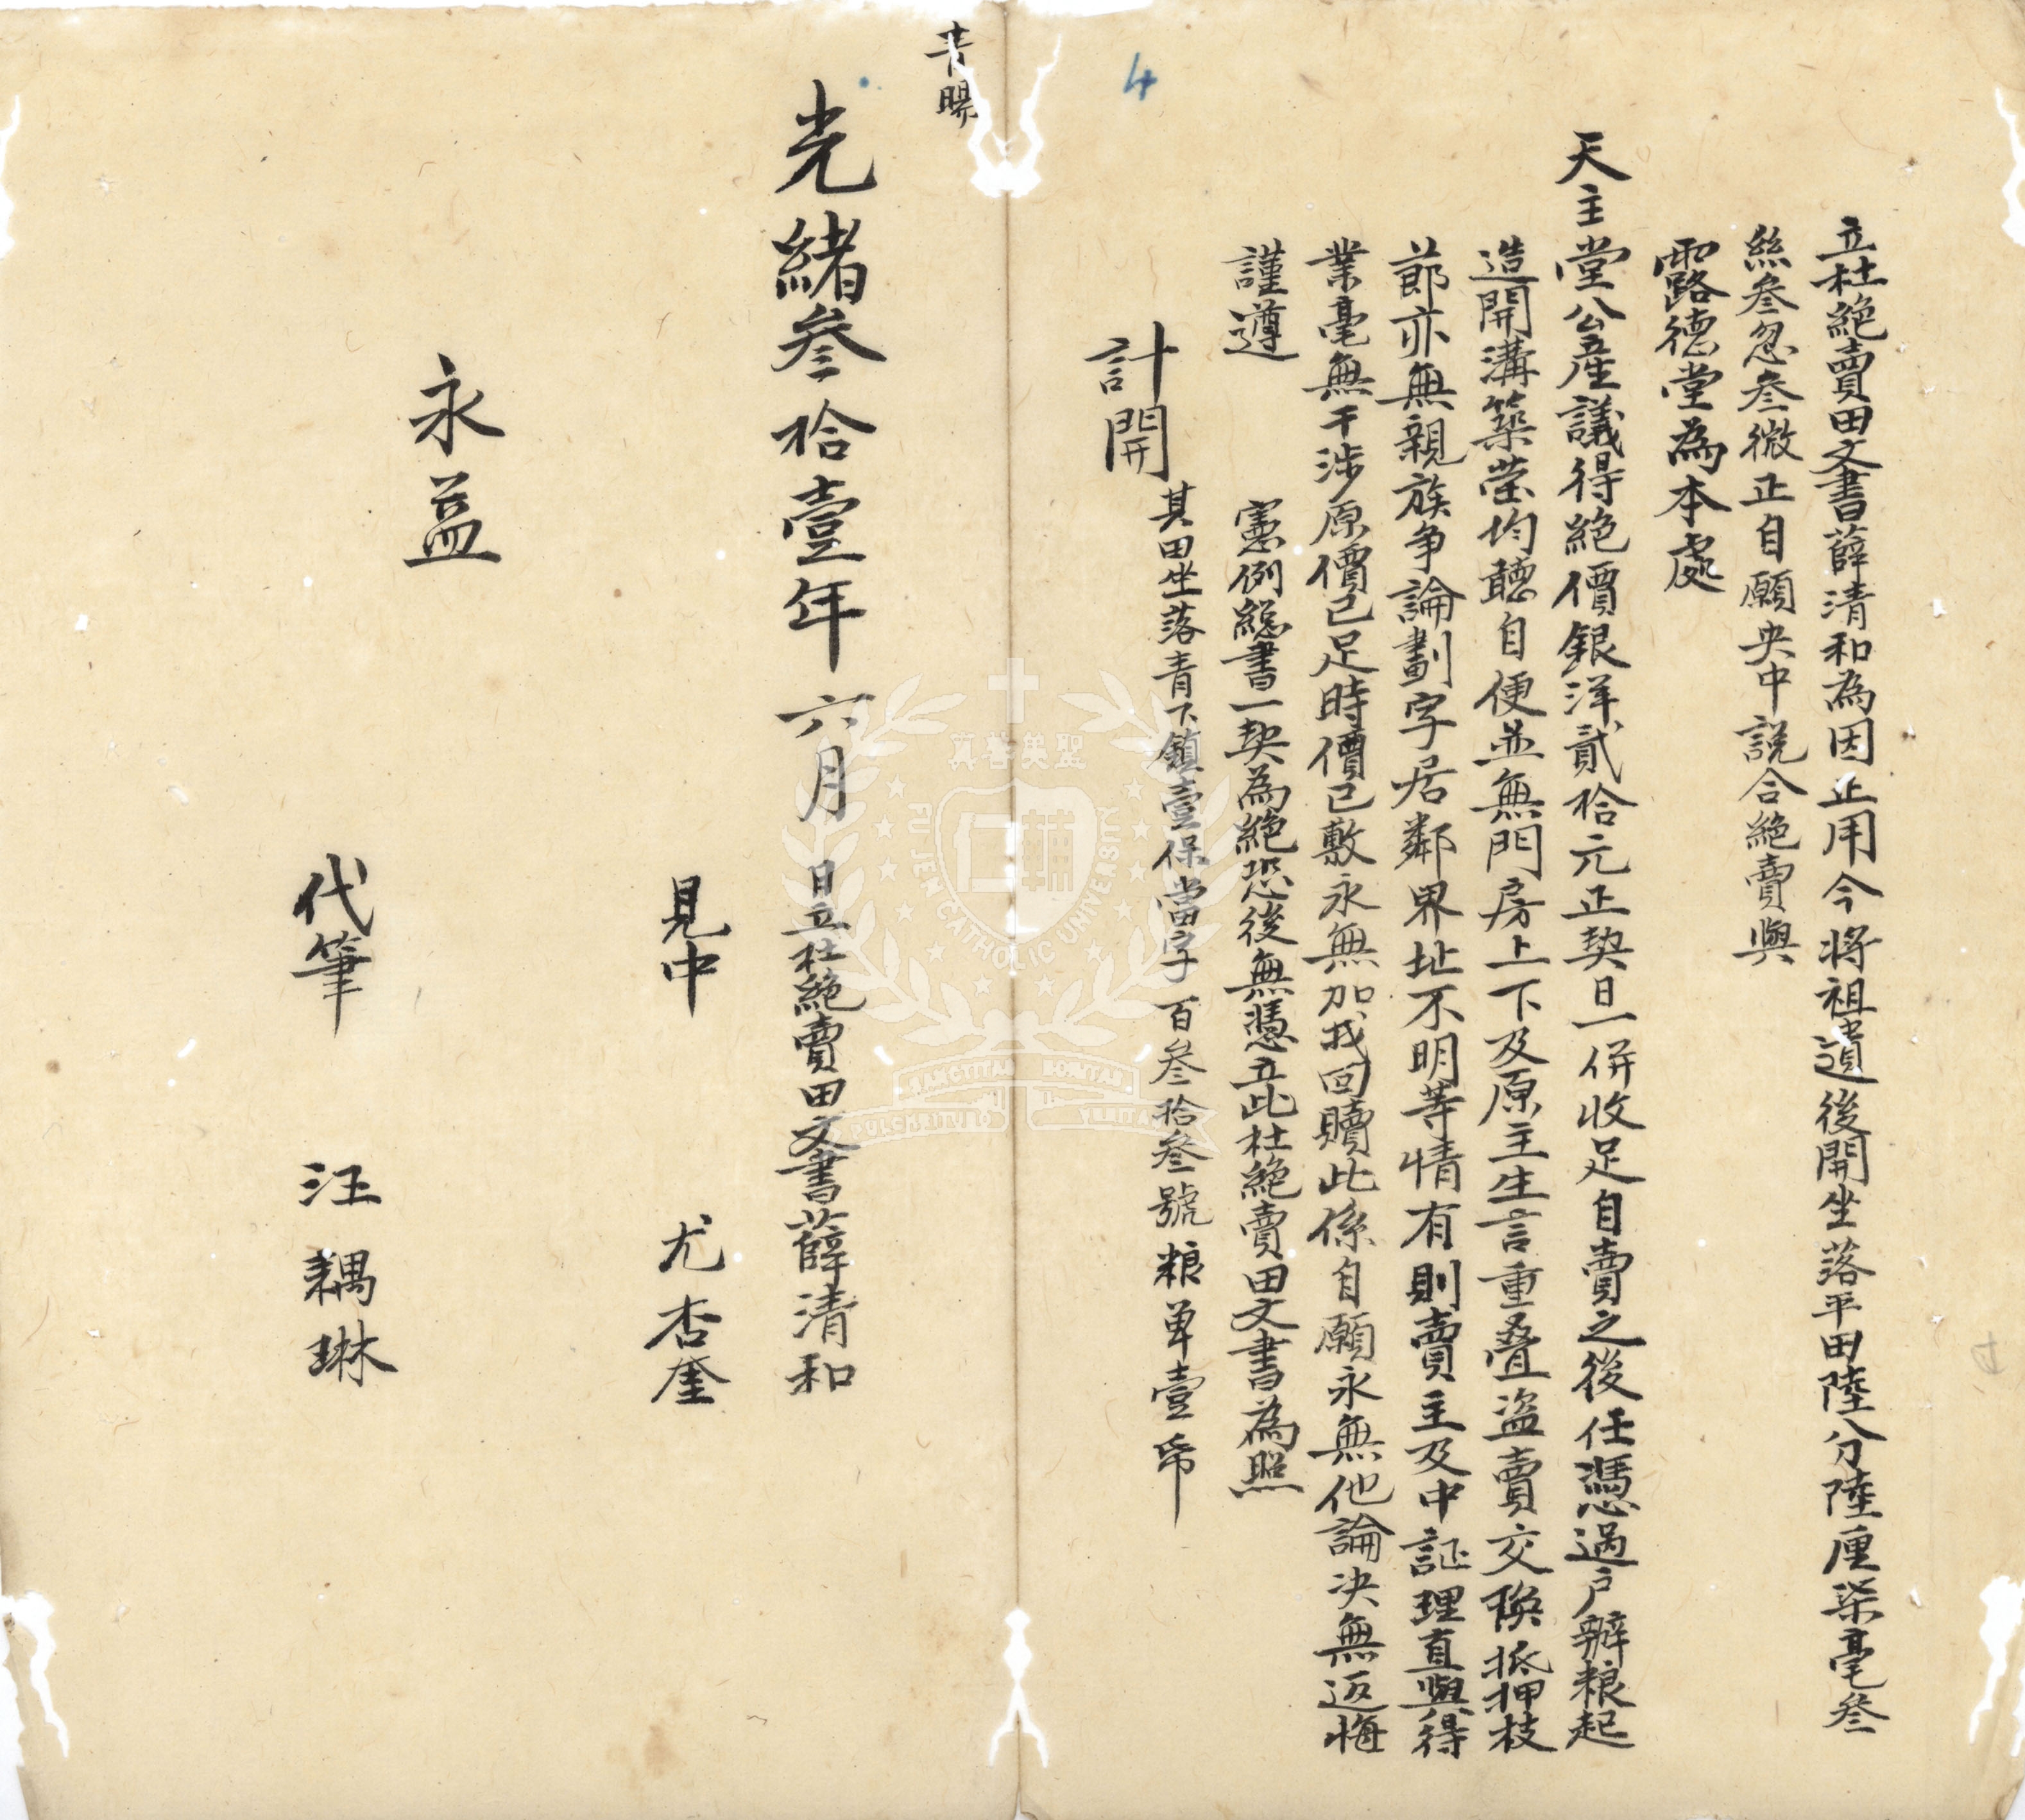 4
立杜絕賣田文書薛清和為因正用今將祖遺後開坐落平田陸分陸厘柒毫叁
絲叁忽叁微正自願央中説合絕賣與
露德堂為本處
天主堂公産議得絕價銀洋貳拾元正契日一併收足自賣之後任憑過戶辦粮起
造開溝築塋均聽自便並無門房上下及原主生言重叠盜賣交換抵押枝
節亦無親族争論劃字居鄰界址不明等情有則賣主及中証理直與得
業毫無干涉原價已足時價已敷永無加找回贖此係自願永無他論决無返悔
謹遵
憲例總書一契為絕恐後無憑立此杜絕賣田文書為照
計開
其田坐落青下鎮壹保當字百叁拾叁號粮单壹帋
青暘
光緒叁拾壹年六月 日立杜絕賣田文書薛清和
見中 尤杏奎
永益
代筆 汪耦琳
聖美善真
FU JEN CATHOLIC UNIVERSITY
SANCTITAS BONITAS
PULCHRITUDO VERITAS